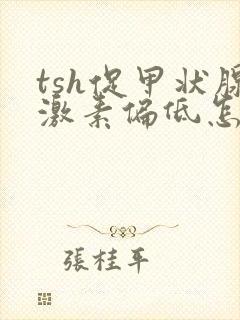 tsh促甲状腺
激素偏低怎
張桂平